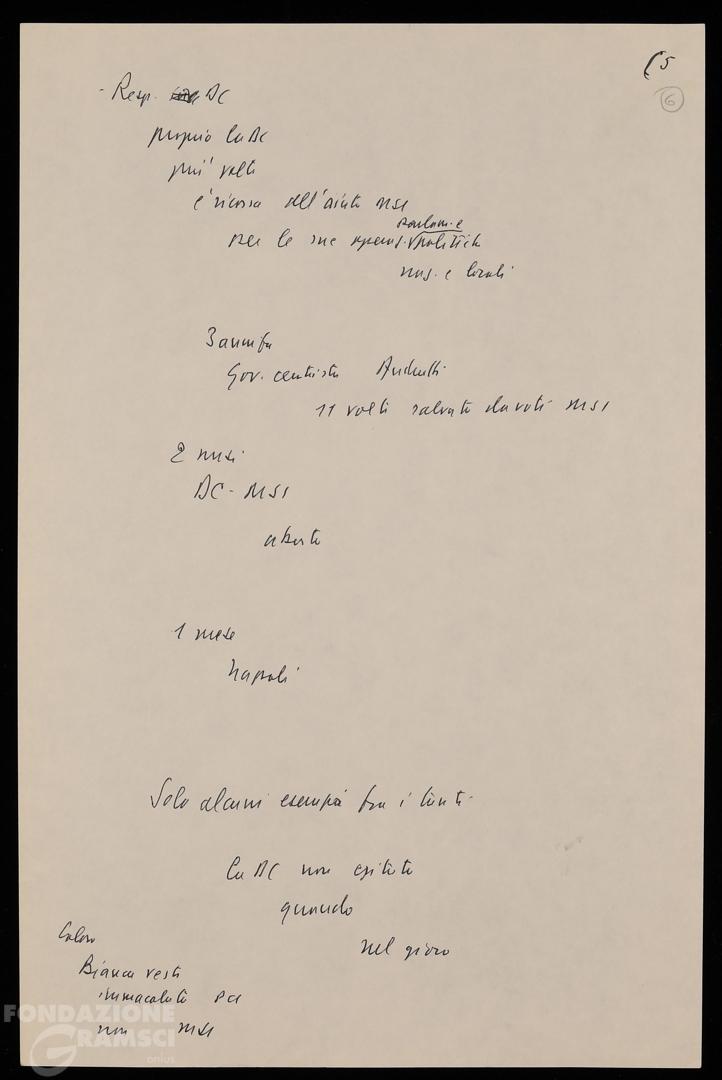 (5
6
- Resp. DC
proprio la DC
più volte
è ricorsa all'aiuto MSI
parlam. e
per le sue operaz. politiche
naz. e locali
3 anni fa
Gov. centrista Andreotti
11 volte salvato da voti MSI
2 mesi
DC - MSI
1 mese
Napoli
Solo alcuni esempi fra i tanti -
La DC non esitato
quando
nel gioco
Bianca veste
immacolata PCI
non MSI
FONDAZIONE
GRAMSCI
onlus